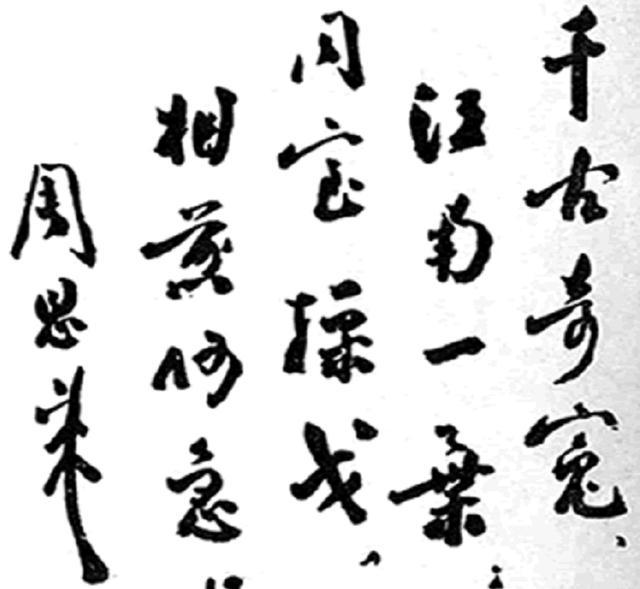 千古奇寃、
江南一葉
同室操戈、
相煎何急
周恩来